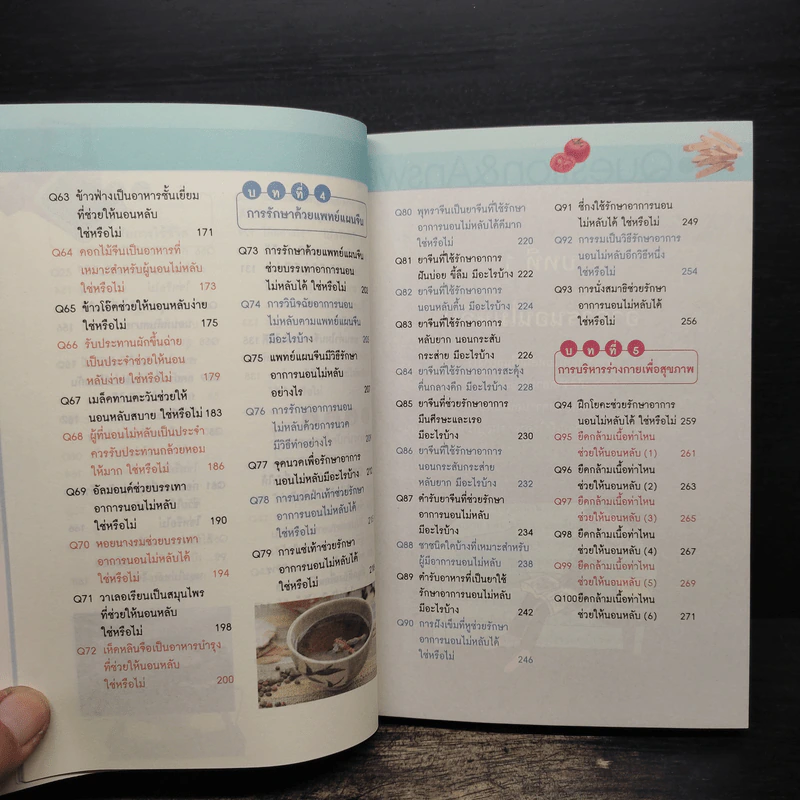 Q63 ข้าวฟ่างเป็นอาหารชั้นเยี่ยม
ที่ช่วยให้นอนหลับ
ใช่หรือไม่ 171
Q64 ดอกไม้จีนเป็นอาหารที่
เหมาะสำหรับผู้นอนไม่หลับ
ใช่หรือไม่ 173
Q65 ข้าวโอ๊ตช่วยให้นอนหลับง่าย
ใช่หรือไม่ 175
Q66 รับประทานผักขึ้นฉ่าย
เป็นประจำช่วยให้นอน
หลับง่าย ใช่หรือไม่ 179
Q67 เมล็ดทานตะวันช่วยให้
นอนหลับสบาย ใช่หรือไม่ 183
Q68 ผู้ที่นอนไม่หลับเป็นประจำ
ควรรับประทานกล้วยหอม
ให้มาก ใช่หรือไม่ 186
Q69 อัลมอนด์ช่วยบรรเทา
อาการนอนไม่หลับ
ใช่หรือไม่ 190
Q70 หอยนางรมช่วยบรรเทา
อาการนอนไม่หลับได้
ใช่หรือไม่ 194
Q71 วาเลอเรียนเป็นสมุนไพร
ที่ช่วยให้นอนหลับ
ใช่หรือไม่ 198
Q72 เห็ดหลินจือเป็นอาหารบำรุง
ที่ช่วยให้นอนหลับ
ใช่หรือไม่ 200
บทที่ 4
การรักษาด้วยแพทย์แผนจีน
Q73 การรักษาด้วยแพทย์แผนจีน
ช่วยบรรเทาอาการนอน
ไม่หลับได้ ใช่หรือไม่
Q74 การวินิจฉัยอาการนอน
ไม่หลับตามแพทย์แผนจีน
มีอะไรบ้าง
Q75 แพทย์แผนจีนมีวิธีรักษา
อาการนอนไม่หลับ
อย่างไร
Q76 การรักษาอาการนอน
ไม่หลับด้วยการนวด
มีวิธีทำอย่างไร
Q77 จุดนวดเพื่อรักษาอาการ
นอนไม่หลับมีอะไรบ้าง
Q78 การนวดฝ่าเท้าช่วยรักษา
อาการนอนไม่หลับได้
ใช่หรือไม่
Q79 การแช่เท้าช่วยรักษา
อาการนอนไม่หลับได้
ใช่หรือไม่
Q80 พุทราจีนเป็นยาจีนที่ใช้รักษา
อาการนอนไม่หลับได้ดีมาก
ใช่หรือไม่ 220
Q81 ยาจีนที่ใช้รักษาอาการ
ฝันบ่อย ขี้ลืม มีอะไรบ้าง 222
Q82 ยาจีนที่ใช้รักษาอาการ
นอนหลับตื้น มีอะไรบ้าง 224
Q83 ยาจีนที่ใช้รักษาอาการ
หลับยาก นอนกระสับ
กระส่าย มีอะไรบ้าง 226
Q84 ยาจีนที่ใช้รักษาอาการสะดุ้ง
ตื่นกลางดึก มีอะไรบ้าง 228
Q85 ยาจีนที่ช่วยรักษาอาการ
มึนศีรษะและเรอ
มีอะไรบ้าง 230
Q86 ยาจีนที่ใช้รักษาอาการ
นอนกระสับกระส่าย
หลับยาก มีอะไรบ้าง 232
Q87 ตำรับยาจีนที่ช่วยรักษา
อาการนอนไม่หลับ
มีอะไรบ้าง 234
Q88 ชาชนิดใดบ้างที่เหมาะสำหรับ
ผู้มีอาการนอนไม่หลับ 238
Q89 ตำรับอาหารที่เป็นยาใช้
รักษาอาการนอนไม่หลับ
มีอะไรบ้าง 242
Q90 การฝังเข็มที่หูช่วยรักษา
อาการนอนไม่หลับได้
ใช่หรือไม่ 246
Q91 ชี่กงใช้รักษาอาการนอน
ไม่หลับได้ ใช่หรือไม่ 249
Q92 การรมเป็นวิธีรักษาอาการ
นอนไม่หลับอีกวิธีหนึ่ง
ใช่หรือไม่ 254
Q93 การนั่งสมาธิช่วยรักษา
อาการนอนไม่หลับได้
ใช่หรือไม่ 256
บทที่ 5
การบริหารร่างกายเพื่อสุขภาพ
Q94 ฝึกโยคะช่วยรักษาอาการ
นอนไม่หลับได้ ใช่หรือไม่ 259
Q95 ยืดกล้ามเนื้อท่าไหน
ช่วยให้นอนหลับ (1) 261
Q96 ยืดกล้ามเนื้อท่าไหน
ช่วยให้นอนหลับ (2) 263
Q97 ยืดกล้ามเนื้อท่าไหน
ช่วยให้นอนหลับ (3) 265
Q98 ยืดกล้ามเนื้อท่าไหน
ช่วยให้นอนหลับ (4) 267
Q99 ยืดกล้ามเนื้อท่าไหน
ช่วยให้นอนหลับ (5) 269
Q100 ยืดกล้ามเนื้อท่าไหน
ช่วยให้นอนหลับ (6) 271